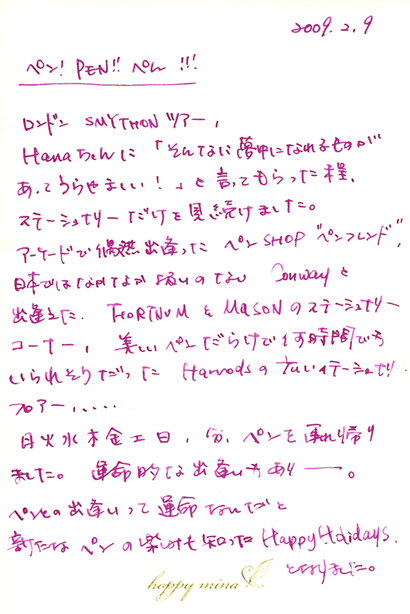 2009.2.9
ペン! PEN!! ぺん !!!
ロンドン SMYTHONツアー,
Hanaちゃんに「そんなに夢中になれるものが
あってうらやましい!」と言ってもらった程,
ステーショナリーだけを見続けました。
アーケードで偶然出逢った ペンSHOP "ペンフレンド",
日本ではなかなか扱いのない Conwayと
出逢えた. FORTNUM & MASONのステーショナリー
コーナー, 美しいペンだらけで何時間でも
いられそうだった Harrodsの ステーショナリー
フロアー,.....
月火水木金土日, 分, ペンを連れ帰り
ました。 運命的な出逢いもあり——。
ペンとの出逢いって運命なんだと
新たなペンの楽しみも知った HappyHolidays.
となりました。
happy mina